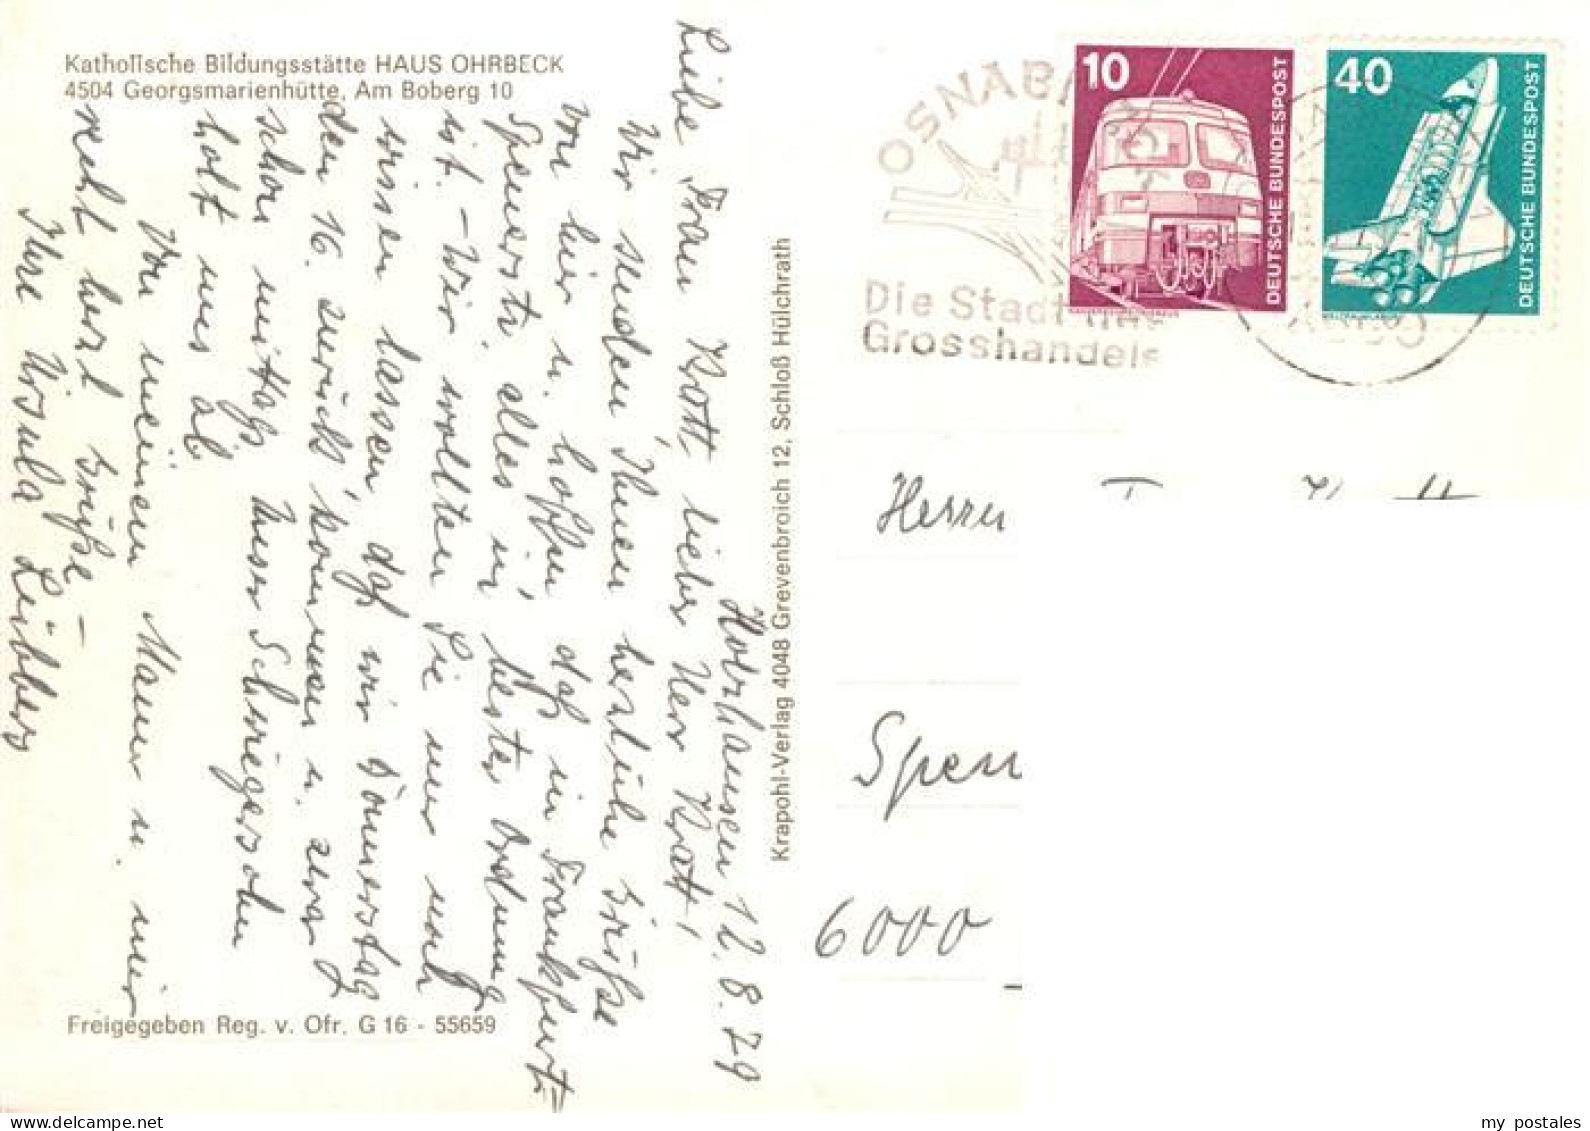 Katholische Bildungsstätte HAUS OHRBECK
4504 Georgsmarienhütte, Am Boberg 10
Holzhausen 12.8.79
Liebe Frau Kratt, lieber Herr Kratt!
Wir senden Ihnen herzliche Grüße
von hier u. hoffen, daß in Frankfurt
Spenerstr. alles in bester Ordnung
ist. - Wir wollten Sie nur noch
wissen lassen, daß wir Donnerstag
den 16. zurück kommen u. zwar
schon mittags. Unser Schwiegersohn
holt uns ab.
Von meinem Mann u. mir
recht herzl. Grüße -
Ihre Ursula
Freigegeben Reg. v. Ofr. G 16 - 55659
Krapohl-Verlag 4048 Grevenbroich 12, Schloß Hülchrath
OSNABR
Die Stadt
Grosshandels
10
DEUTSCHE BUNDESPOST
40
DEUTSCHE BUNDESPOST
Herrn
Spen
6000
my postales